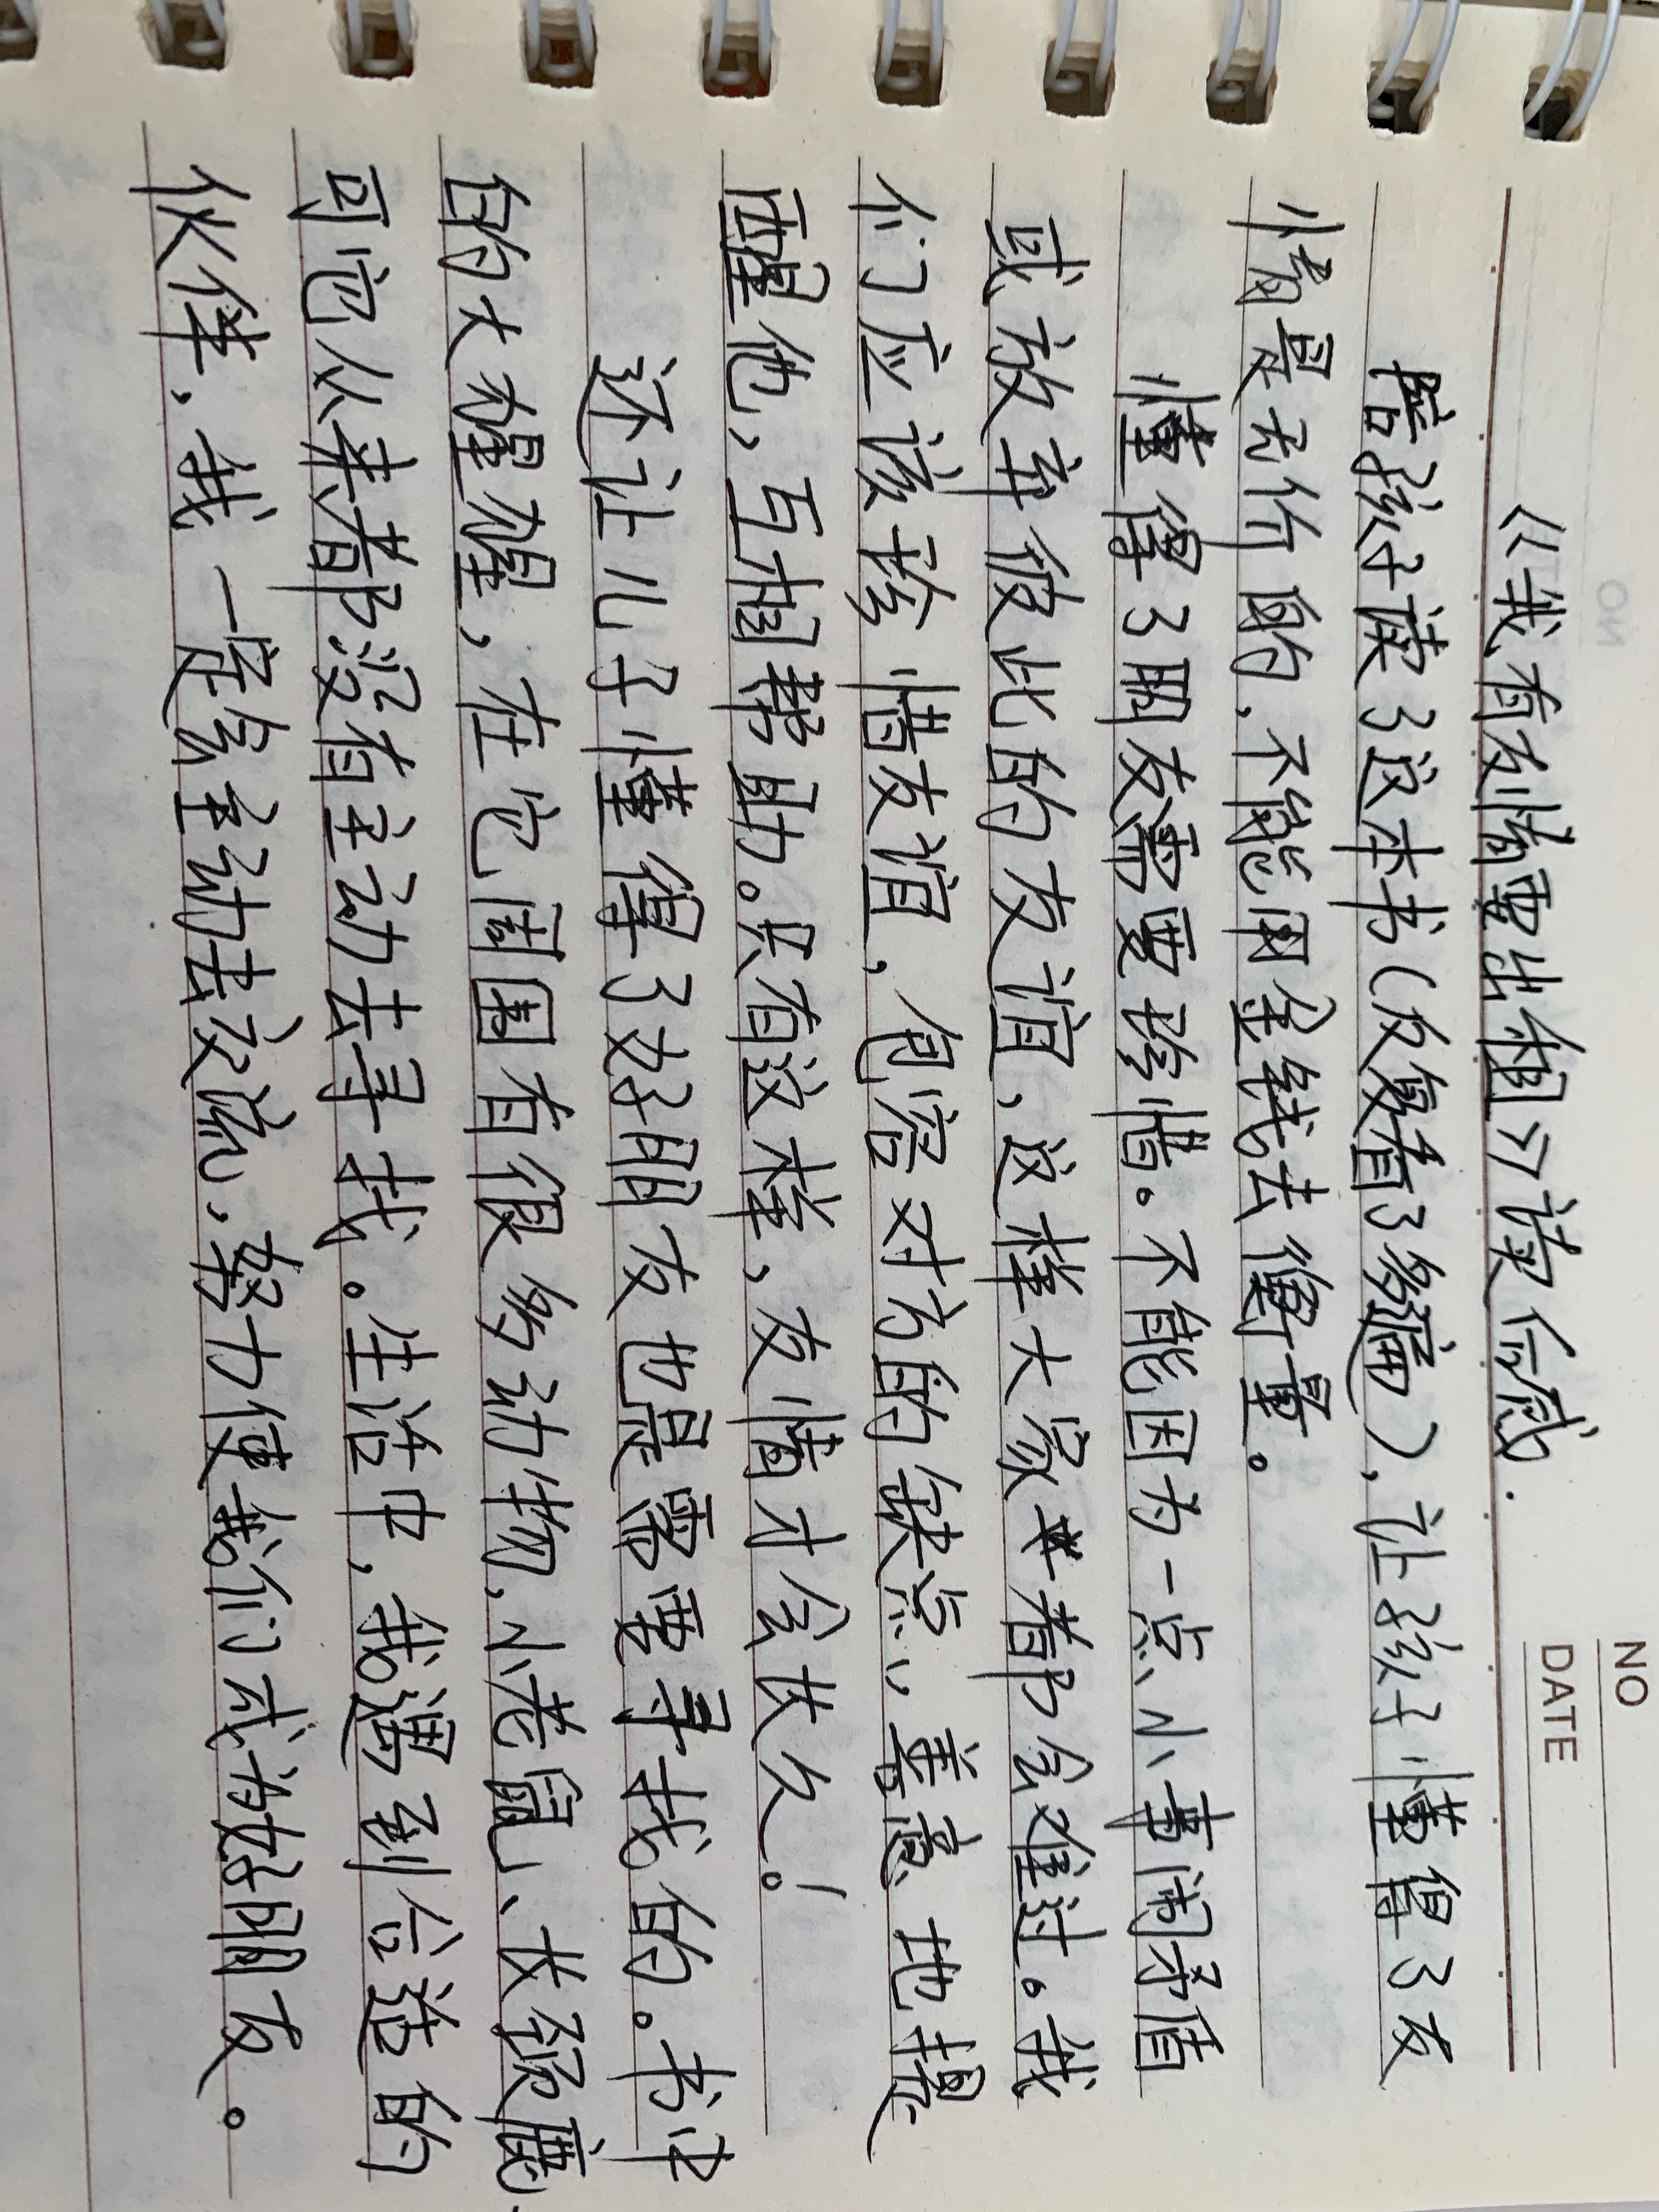 NO
DATE
《我有友情要出租》读后感.
陪孩子读了这本书(反复看了多遍),让孩子懂得了友
情是无价的,不能用金钱去衡量。
懂得了朋友需要珍惜。不能因为一点小事闹矛盾
或放弃彼此的友谊,这样大家都会难过。我
们应该珍惜友谊,包容对方的缺点,善意地提
醒他,互相帮助。只有这样,友情才会长久!
还让儿子懂得了好朋友也是需要寻找的。书中
的大猩猩,在它周围有很多动物,小老鼠、长颈鹿、
可它从来都没有主动去寻找。生活中,我遇到合适的
伙伴,我一定会主动去交流,努力使我们成为好朋友。